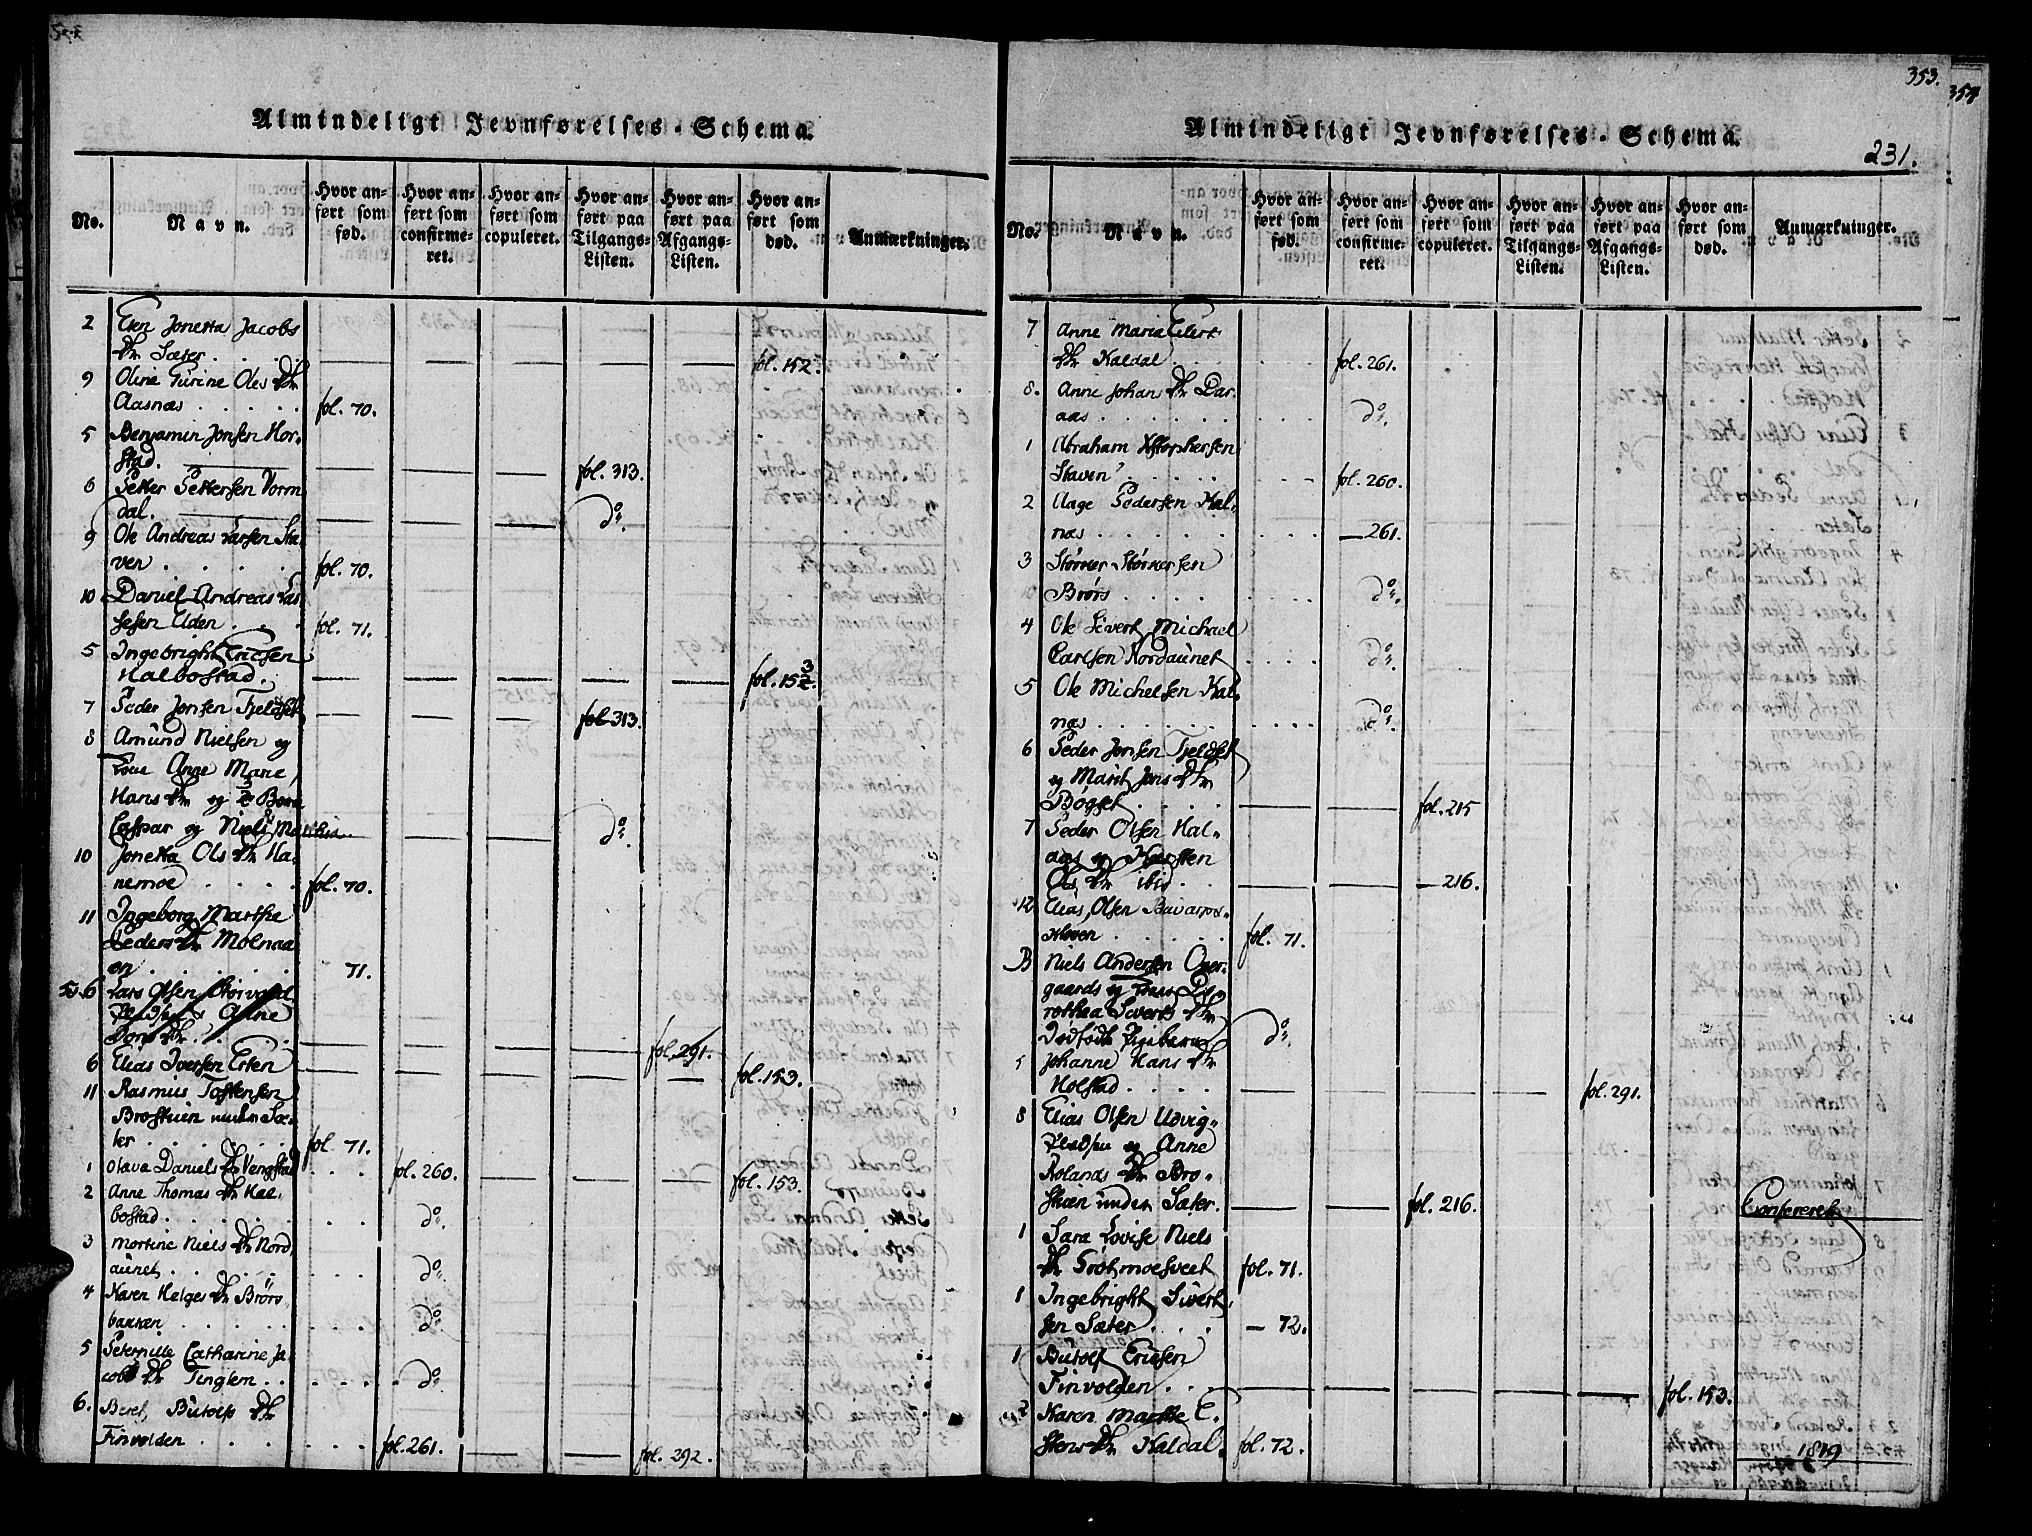 Almindeligt Jevnførelses-Schema.
No.
Navn.
Hvor anført som fød.
Hvor anført som confirmeret.
Hvor anført som copuleret.
Hvor anført paa Tilgangs-Listen.
Hvor anført paa Afgangs-Listen.
Hvor anført som død.
Anmærkninger.
2 Elen Jonetta Jacobs
Dtr Sæter . . . . fol. 152.
9 Oline Gurine Ols Dtr
Aasnæs . . . . . fol. 70.
5 Benjamin Jonsen Hor-
stad. fol. 313.
6 Petter Pettersen Vorm
dal. do.
9 Ole Andreas Larsen Sta-
ven . . . . . fol. 70.
10 Daniel Andreas Las-
sesen Uden . . . fol. 71.
5 Ingebright Ericsen
Halbostad. fol. 153.
7 Peder Jonsen Tjeldset
fol 313.
8 Amund Nielsen og
Kone Anne Marie
Hans Dtr og 2 Børn
Caspar og Niels Mathia do.
10 Jonetta Ols Dtr Ha-
nemoe . . . . fol. 70.
11 Ingeborg Marthe
Peders Dtr Moenaa
en . . . . . . 71.
5.6 Lars Olsen
Anne
Dtr. . . . fol. 291.
6 Elias Iversen Eten
fol. 153.
11 Rasmus Tostensen
Broskien under Sæ-
ter . . . . . . fol. 71.
1 Olava Daniels Dtr Vengstad . . . fol. 260. fol. 153.
2 Anne Thomas Dtr Kal-
bostad . . . . . . . . do.
3 Martine Niels Dtr Nord
aunet . . . . . . . . do.
4 Karen Helges Dtr Børs
bakken . . . . . . . . do.
5 Peternille Catharine Ja-
cobs Dtr Tinglem . . . . . . do.
6. Beret Butolfs Dtr
Finvolden . . . . . . . fol. 261. fol. 292.
353.
354
Almindeligt Jevnførelses-Schema.
231.
No.
Navn.
Hvor anført som fød.
Hvor anført som confirmeret.
Hvor anført som copuleret.
Hvor anført paa Tilgangs-Listen.
Hvor anført paa Afgangs-Listen.
Hvor anført som død.
Anmærkninger.
7 Anne Maria Eilert
Dtr Kaldal . . . . . . fol. 261.
8. Anne Johans Dtr Par-
aas . . . . . . . . do.
1 Abraham Xstophersen
Staven . . . . . . . fol. 260.
2 Aage Pedersen Kal-
næs . . . . . . . . . . — 261.
3 Størker Størkersen
Brørs . . . . . . . . do.
4 Ole Sivert Michael
Carlsen Nordaunet . . . . do.
5 Ole Michelsen Kal-
næs . . . . . . . . . . do.
6 Peder Jonsen Tjeldset
og Marit Jons Dtr
Bøgset . . . . fol. 215
7 Peder Olsen Hal-
aas og Kirsten
Ols Dtr ibid. . . — 216.
12 Elias Olsen Bavarps-
kleven . . . . . fol. 71.
B Niels Andersen Over-
gaards og Kones Do-
rothea Siverts Dtr
Dødfødt Pigebarn do.
5 Johanne Hans Dtr
Holstad . . . . fol. 291.
8 Elias Olsen Udvig-
Pladsen og Anne
Rolands Dtr Bro-
skien under Sæter. fol. 216. Confereret
1 Sara Lovise Niels
Dtr Grøtmoesveet fol. 71.
1 Ingebright Sivert-
sen Sæter . . . . — 72.
1 Butolf Ericsen
Finvolden . . fol. 153.
2 Karen Marthe C.
Stens Dtr Kaldal. fol. 72.
1819